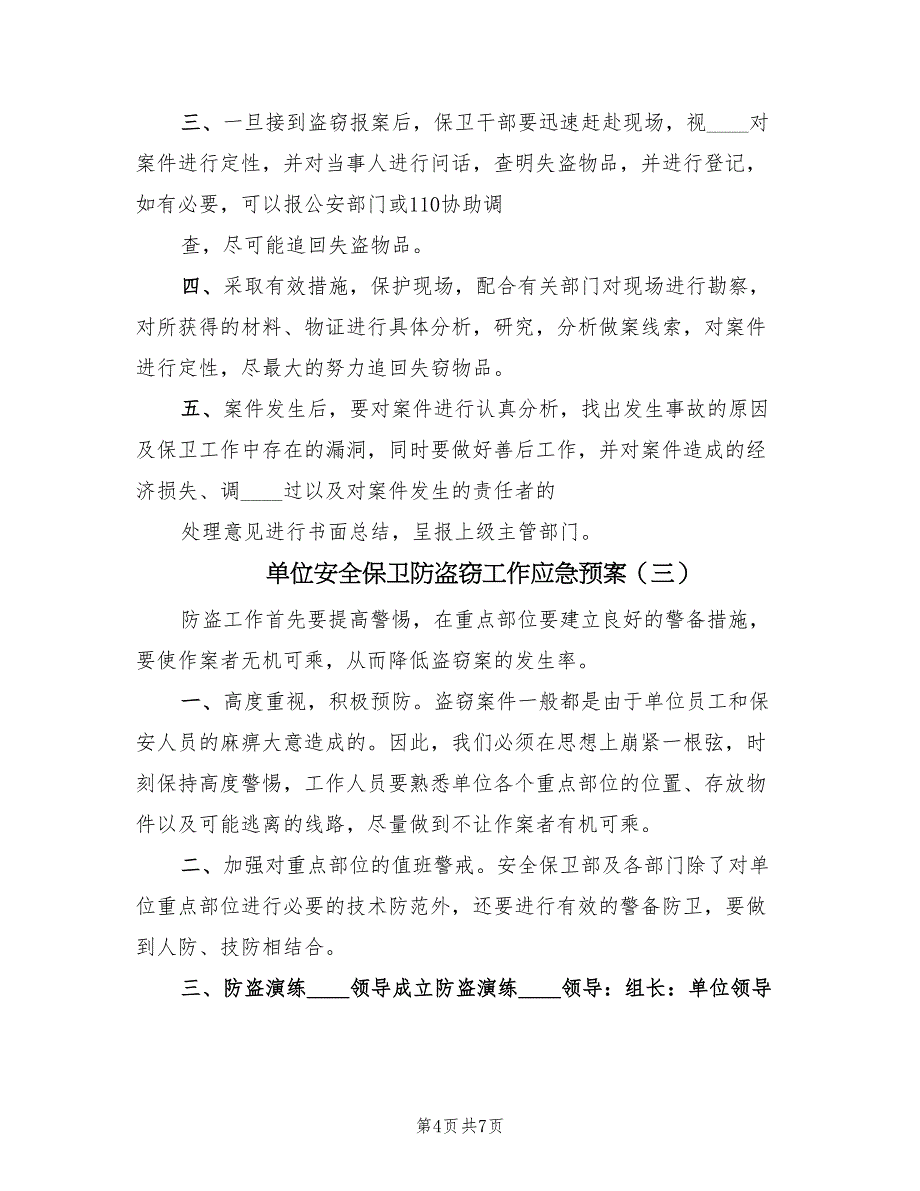 三、一旦接到盗窃报案后，保卫干部要迅速赶赴现场，视____对
案件进行定性，并对当事人进行问话，查明失盗物品，并进行登记，
如有必要，可以报公安部门或110协助调
查，尽可能追回失盗物品。
四、采取有效措施，保护现场，配合有关部门对现场进行勘察，
对所获得的材料、物证进行具体分析，研究，分析做案线索，对案件
进行定性，尽最大的努力追回失窃物品。
五、案件发生后，要对案件进行认真分析，找出发生事故的原因
及保卫工作中存在的漏洞，同时要做好善后工作，并对案件造成的经
济损失、调____过以及对案件发生的责任者的
处理意见进行书面总结，呈报上级主管部门。
单位安全保卫防盗窃工作应急预案（三）
防盗工作首先要提高警惕，在重点部位要建立良好的警备措施，
要使作案者无机可乘，从而降低盗窃案的发生率。
一、高度重视，积极预防。盗窃案件一般都是由于单位员工和保
安人员的麻痹大意造成的。因此，我们必须在思想上崩紧一根弦，时
刻保持高度警惕，工作人员要熟悉单位各个重点部位的位置、存放物
件以及可能逃离的线路，尽量做到不让作案者有机可乘。
二、加强对重点部位的值班警戒。安全保卫部及各部门除了对单
位重点部位进行必要的技术防范外，还要进行有效的警备防卫，要做
到人防、技防相结合。
三、防盗演练____领导成立防盗演练____领导：组长：单位领导
第4页共7页